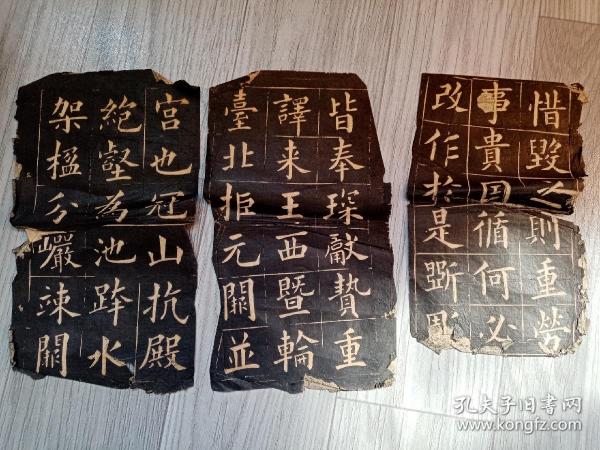 宫也冠山抗殿
絶壑為池跨水
架楹分巖竦闕
皆奉琛獻贄重
譯来王西暨輪
臺北拒元闕並
惜毀之則重勞
事貴因循何必
改作於是斲彫
孔夫子旧书网